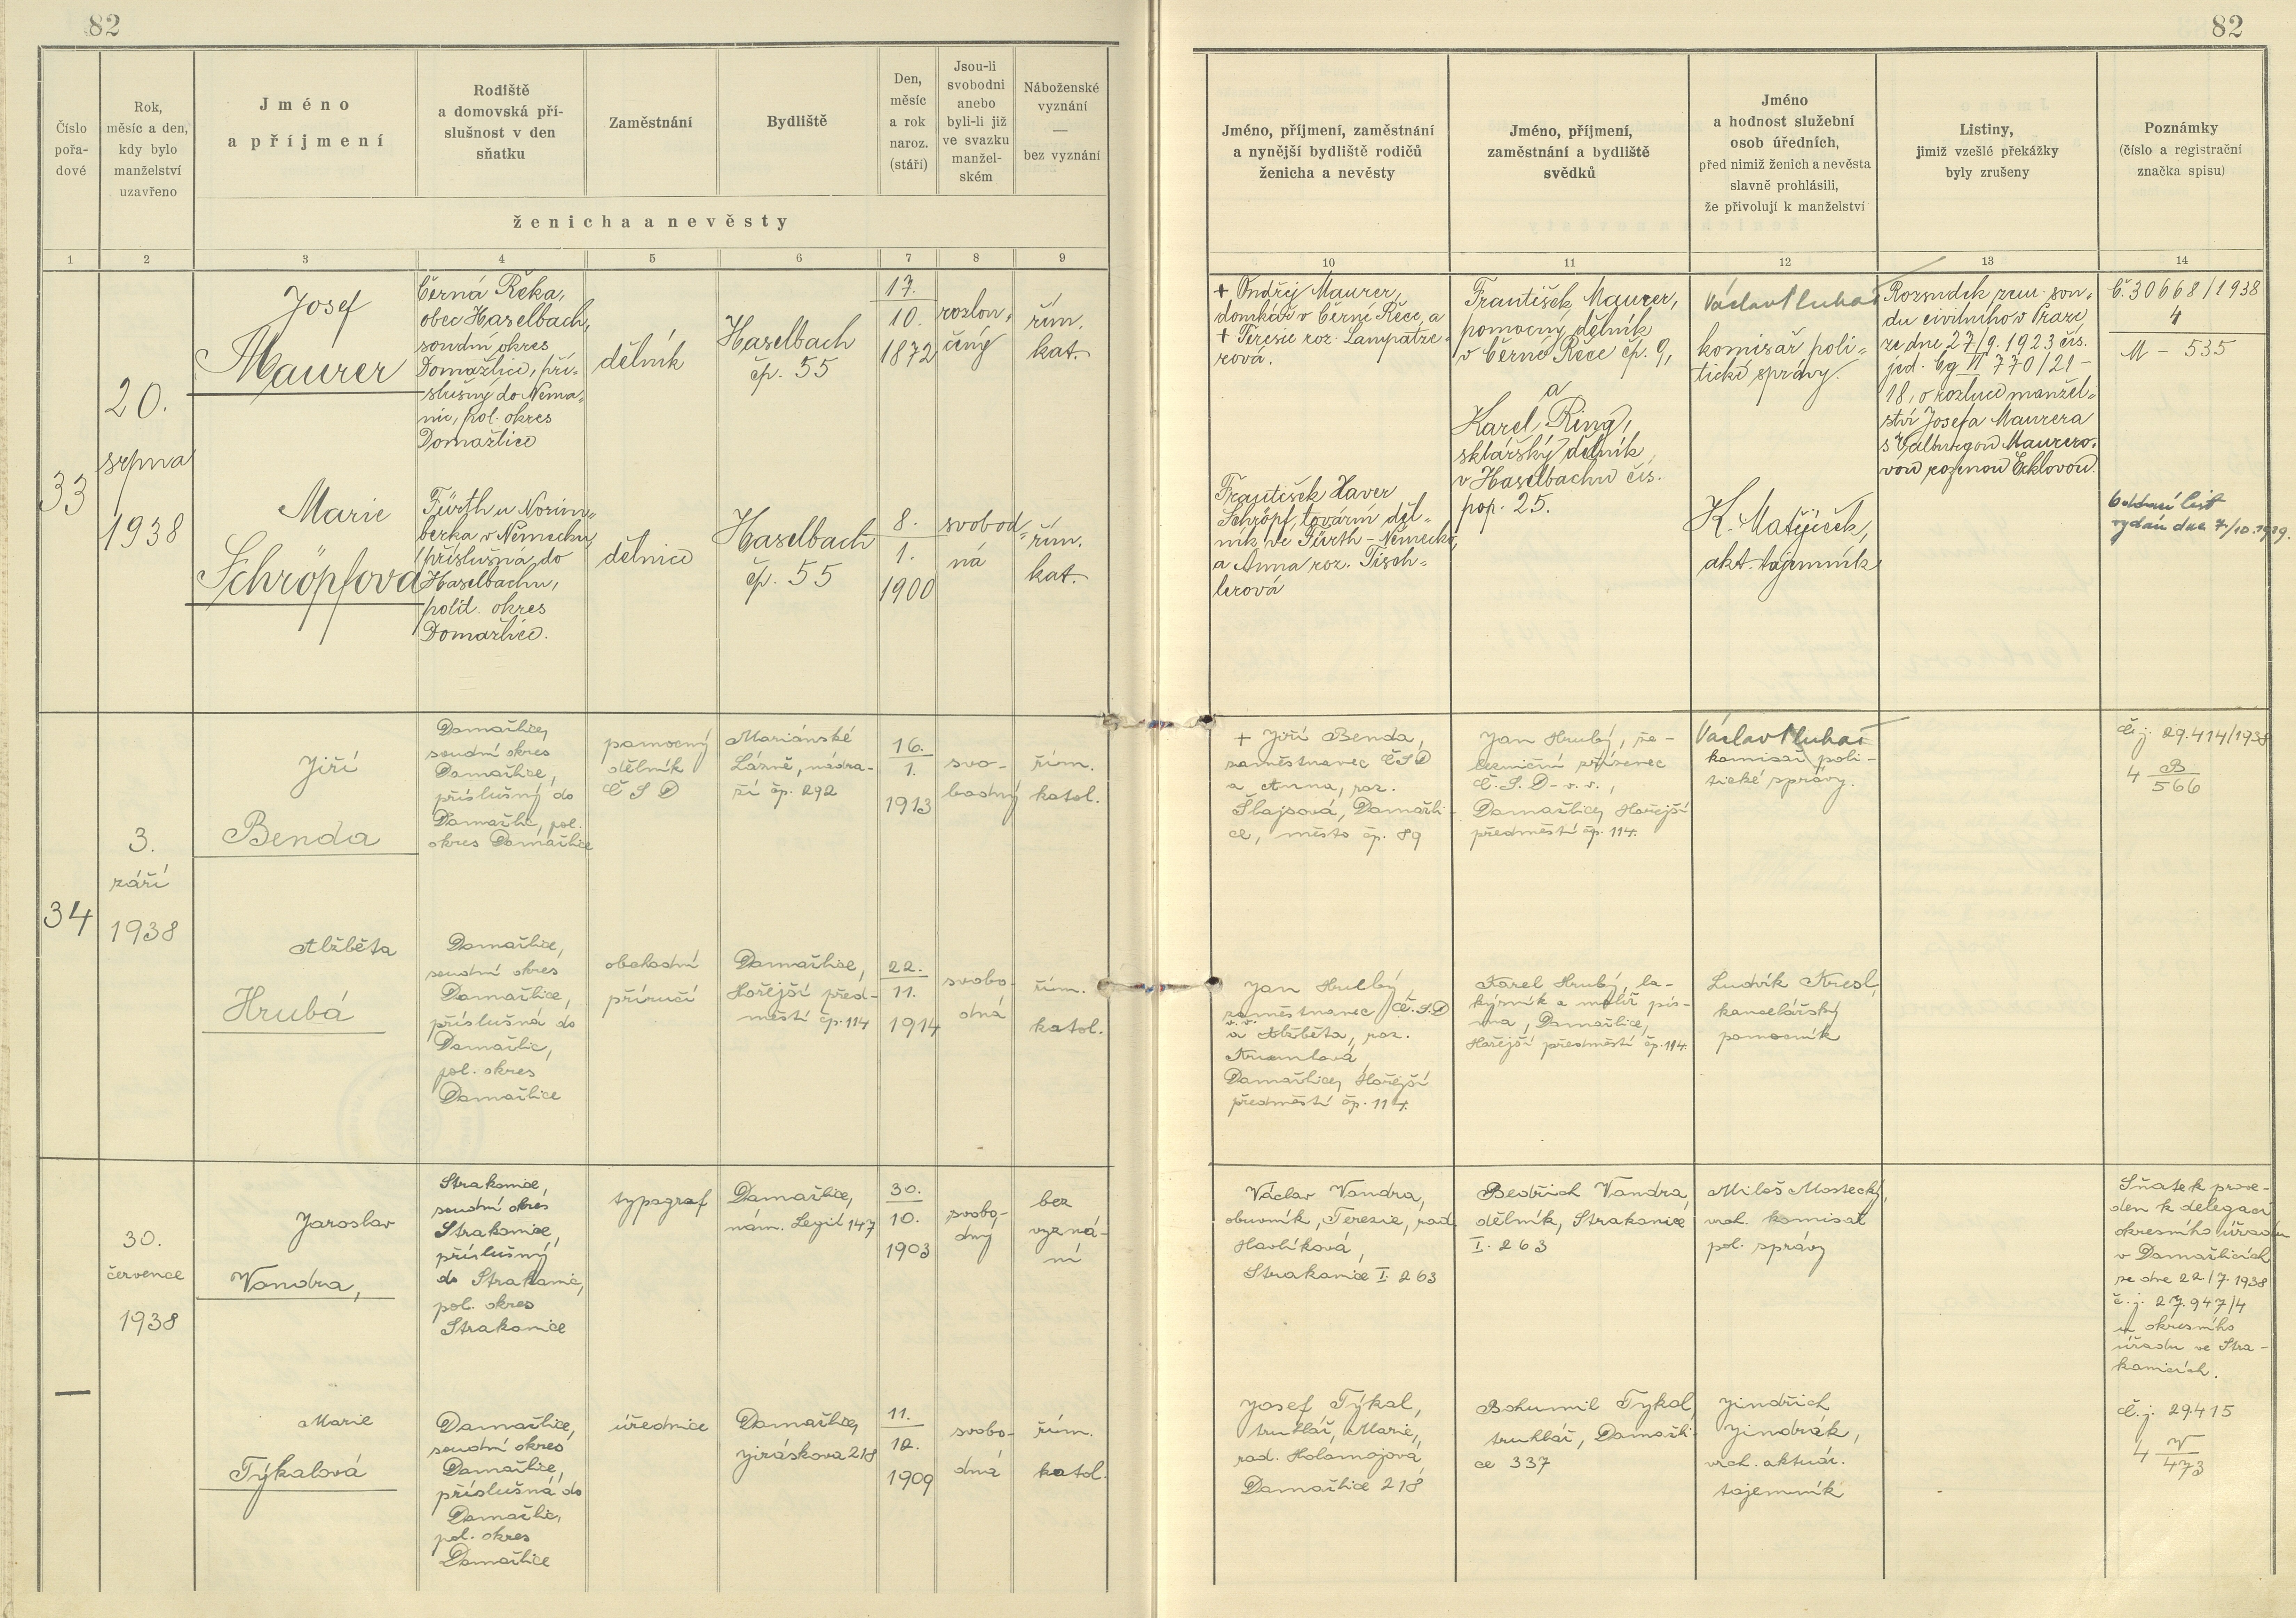 82
82
Číslo
pořa-
dové
Rok,
měsíc a den,
kdy bylo
manželství
uzavřeno
Jméno
a příjmení
Rodiště
a domovská pří-
slušnost v den
sňatku
Zaměstnání
Bydliště
Den,
měsíc
a rok
naroz.
(stáří)
Jsou-li
svobodni
anebo
byli-li již
ve svazku
manžel-
ském
Náboženské
vyznání
—
bez vyznání
ženicha a nevěsty
Jméno, příjmení, zaměstnání
a nynější bydliště rodičů
ženicha a nevěsty
Jméno, příjmení,
zaměstnání a bydliště
svědků
Jméno
a hodnost služební
osob úředních,
před nimiž ženich a nevěsta
slavně prohlásili,
že přivolují k manželství
Listiny,
jimiž vzešlé překážky
byly zrušeny
Poznámky
(číslo a registrační
značka spisu)
1 2 3 4 5 6 7 8 9 10 11 12 13 14
33
20.
srpna
1938
Josef
Maurer
Černá Řeka,
obec Haselbach,
soudní okres
Domažlice, pří-
slušný do Nema-
nic, pol. okres
Domažlice
dělník
Haselbach
čp. 55
17.
10.
1872
rozlou-
čený
řím.
kat.
+ Ondřej Maurer,
domkář v Černé Řece, a
+ Teresie roz. Lampatze-
rová.
František Maurer,
pomocný dělník
v Černé Řece čp. 9,
a
Karel Ring,
sklářský dělník
v Haselbachu čís.
pop. 25.
Václav Pluhař
komisař poli-
tické správy.
Rozsudek zem. sou-
du civilního v Praze
ze dne 27/9. 1923 čís.
jed. Cg II 770/21-
18, o rozluce manžel-
ství Josefa Maurera
s Walburgou Maurero-
vou rozenou Ecklovou.
Č. 30668/1938
4
M - 535
Marie
Schröpfová
Fürth u Norim-
berka v Německu,
příslušná do
Haselbachu,
polit. okres
Domažlice.
dělnice
Haselbach
čp. 55
8.
1.
1900
svobod-
ná
řím.
kat.
František Xaver
Schröpf, tovární děl-
ník ve Fürth - Německo,
a Anna roz. Tisch-
lerová
K. Matějíček,
akt. tajemník
Oddací list
vydán dne 7/10.1939.
34
3.
září
1938
Jiří
Benda
Domažlice,
soudní okres
Domažlice,
příslušný do
Domažlic, pol.
okres Domažlice
pomocný
dělník
ČSD
Mariánské
Lázně, nádra-
ží čp. 292
16.
1.
1913
svo-
bodný
řím.
katol.
+ Jiří Benda,
zaměstnanec ČSD
a Anna, roz.
Šlajsová, Domažli-
ce, město čp. 89
Jan Hrubý, že-
lezniční zřízenec
Č.S.D - v.v.,
Domažlice, Hořejší
předměstí čp. 114.
Václav Pluhař
komisař poli-
tické správy.
Č.j. 29.414/1938
4 B
566
Alžběta
Hrubá
Domažlice,
soudní okres
Domažlice,
příslušná do
Domažlic,
pol. okres
Domažlice
obchodní
příručí
Domažlice,
Hořejší před-
městí čp. 114
22.
11.
1914
svobo-
dná
řím.
katol.
Jan Hrubý,
zaměstnanec Č.S.D
v.v.
a Alžběta, roz.
Krumlová,
Domažlice, Hořejší
předměstí čp. 114.
Karel Hrubý, la-
kýrník a malíř pís-
ma, Domažlice,
Hořejší předměstí čp. 114.
Ludvík Kresl,
kancelářský
pomocník
—
30.
července
1938
Jaroslav
Vondra,
Strakonice,
soudní okres
Strakonice,
příslušný
do Strakonic,
pol. okres
Strakonice
typograf
Domažlice,
nám. Legií 147
30.
10.
1903
svobo-
dný
bez
vyzná-
ní
Václav Vondra,
obuvník, Terezie, rod.
Havlíková,
Strakonice I. 263
Bedřich Vondra,
dělník, Strakonice
I. 263
Miloš Mostecký,
vrch. komisař
pol. správy
Sňatek prove-
den k delegaci
okresního úřadu
v Domažlicích
ze dne 22/7. 1938
č.j. 27.947/4
u okresního
úřadu ve Stra-
konicích.
Marie
Týkalová
Domažlice,
soudní okres
Domažlice,
příslušná do
Domažlic,
pol. okres
Domažlice
úřednice
Domažlice,
Jiráskova 218
11.
12.
1909
svobo-
dná
řím.
katol.
Josef Týkal,
truhlář, Marie,
rod. Holomojová,
Domažlice 218
Bohumil Tykal
truhlář, Domažli-
ce 337
Jindřich
Jindrák,
vrch. aktuár.
tajemník
Č.j. 29.415
4 V
473